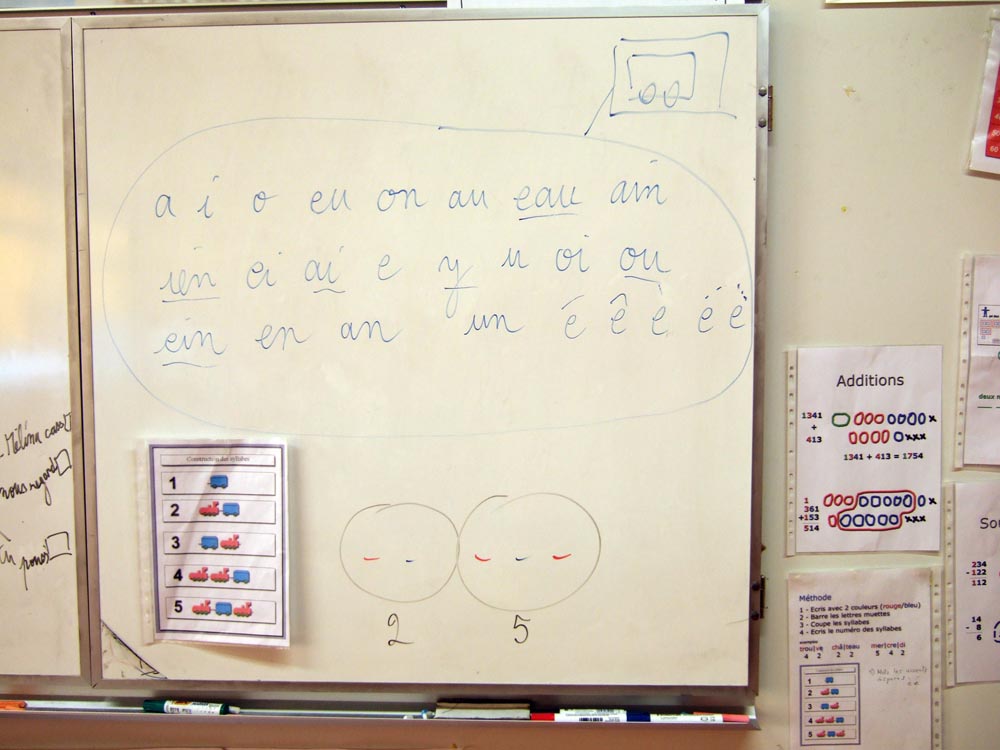 a i o eu on au eau ain
ien ei ai e y u oi ou
ein en an un é ê è ë
2 5
Construction des syllabes
1
2
3
4
5
Mélina
nous
Tu
Additions
1341
+
413
1341 + 413 = 1754
1
361
+153
514
Méthode
1 - Ecris avec 2 couleurs (rouge/bleu)
2 - Barre les lettres muettes
3 - Coupe les syllabes
4 - Ecris le numéro des syllabes
exemples
trou|ve châ|teau mer|cre|di
4 2 2 2 5 4 2
1
2
3
4
5
deux
234
-122
112
14
- 8
6
60